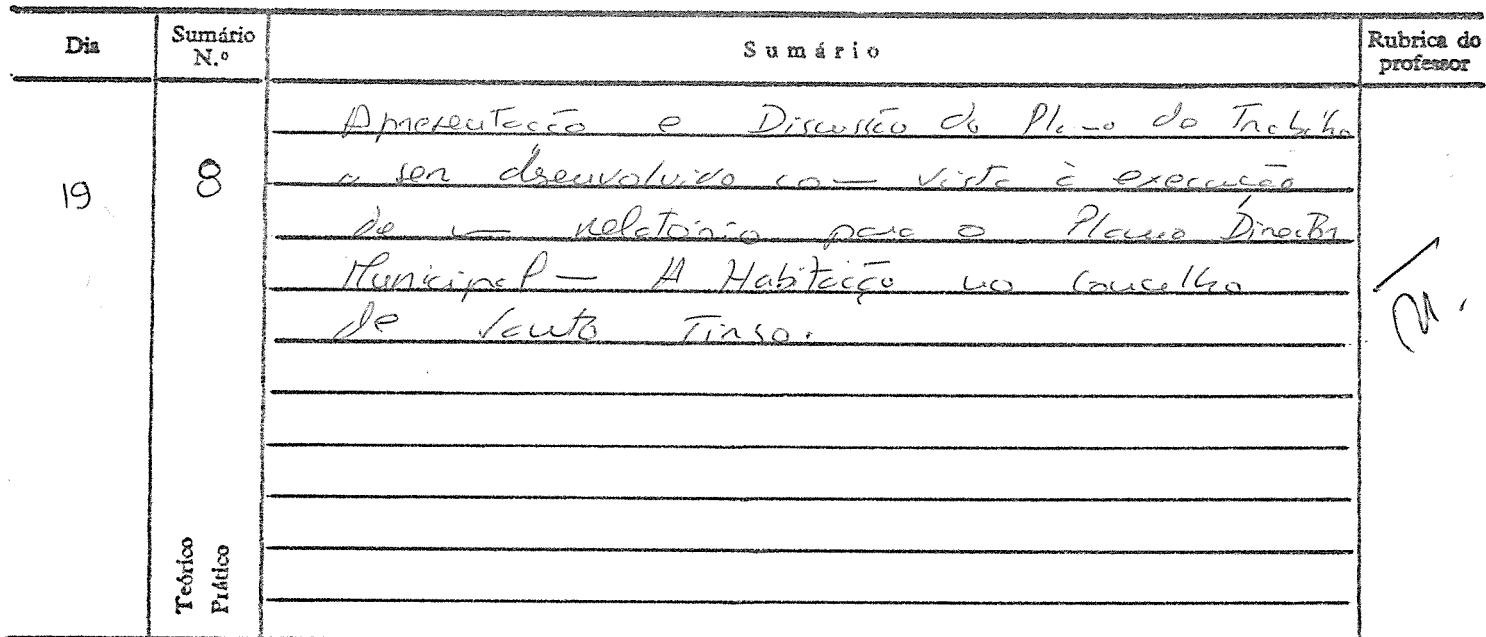 Dia
Sumário
N.º
Sumário
Rubrica do
professor
19
8
Apresentação e Discussão do Plano do Trabalho
a ser desenvolvido com vista à execução
de um relatório para o Plano Director
Municipal — A Habitação no Concelho
de Santo Tirso.
Teórico
Prático